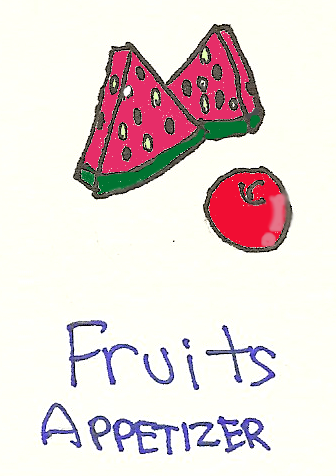 Fruits
APPETIZER